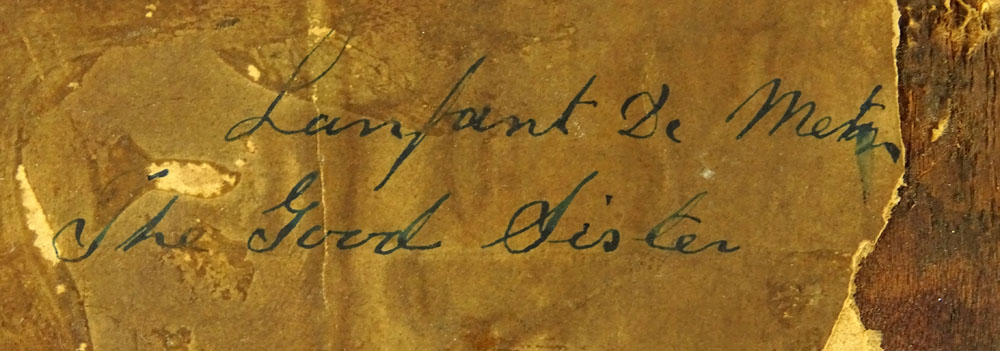 Lanfant De Metz
The Good Sister